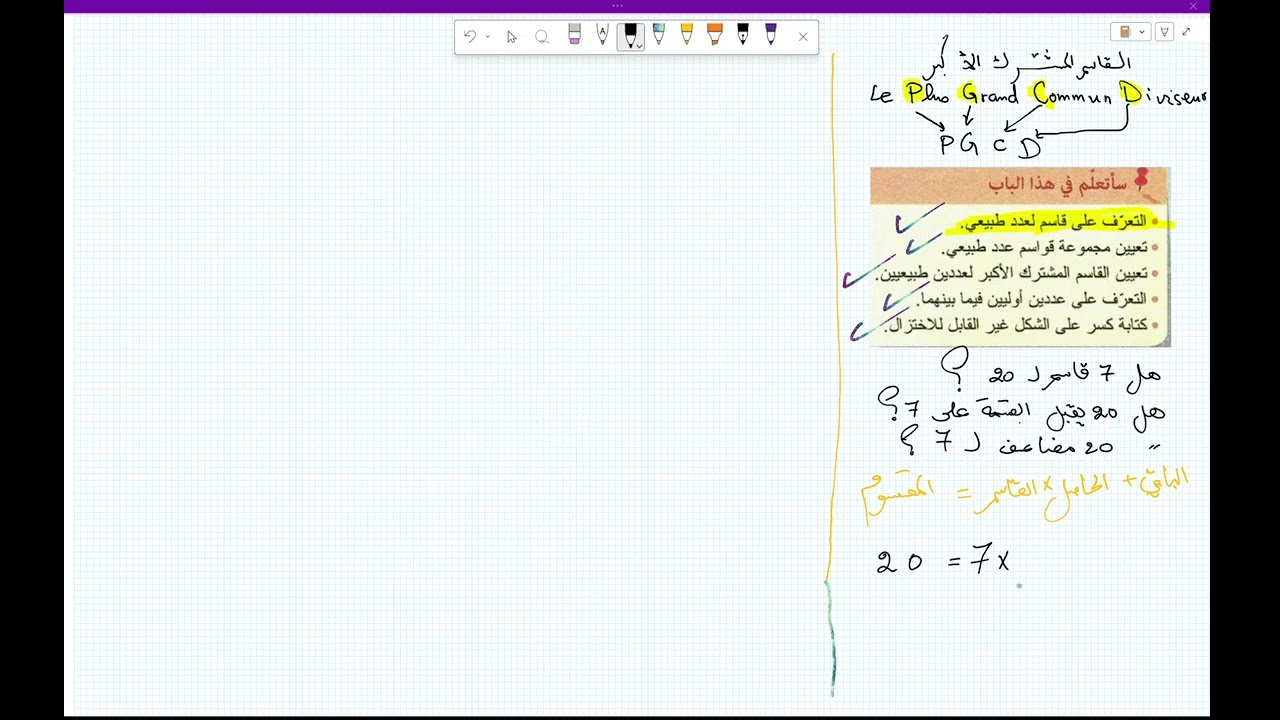 القاسم المشترك الأكبر
Le Plus Grand Commun Diviseur
P G C D
سأتعلّم في هذا الباب
• التعرّف على قاسم لعدد طبيعي.
• تعيين مجموعة قواسم عدد طبيعي.
• تعيين القاسم المشترك الأكبر لعددين طبيعيين.
• التعرّف على عددين أوليين فيما بينهما.
• كتابة كسر على الشكل غير القابل للاختزال.
هل 7 قاسم لـ 20 ؟
هل 20 يقبل القسمة على 7 ؟
" 20 مضاعف لـ 7 ؟
الباقي + الحاصل × القاسم = المقسوم
20 = 7 ×